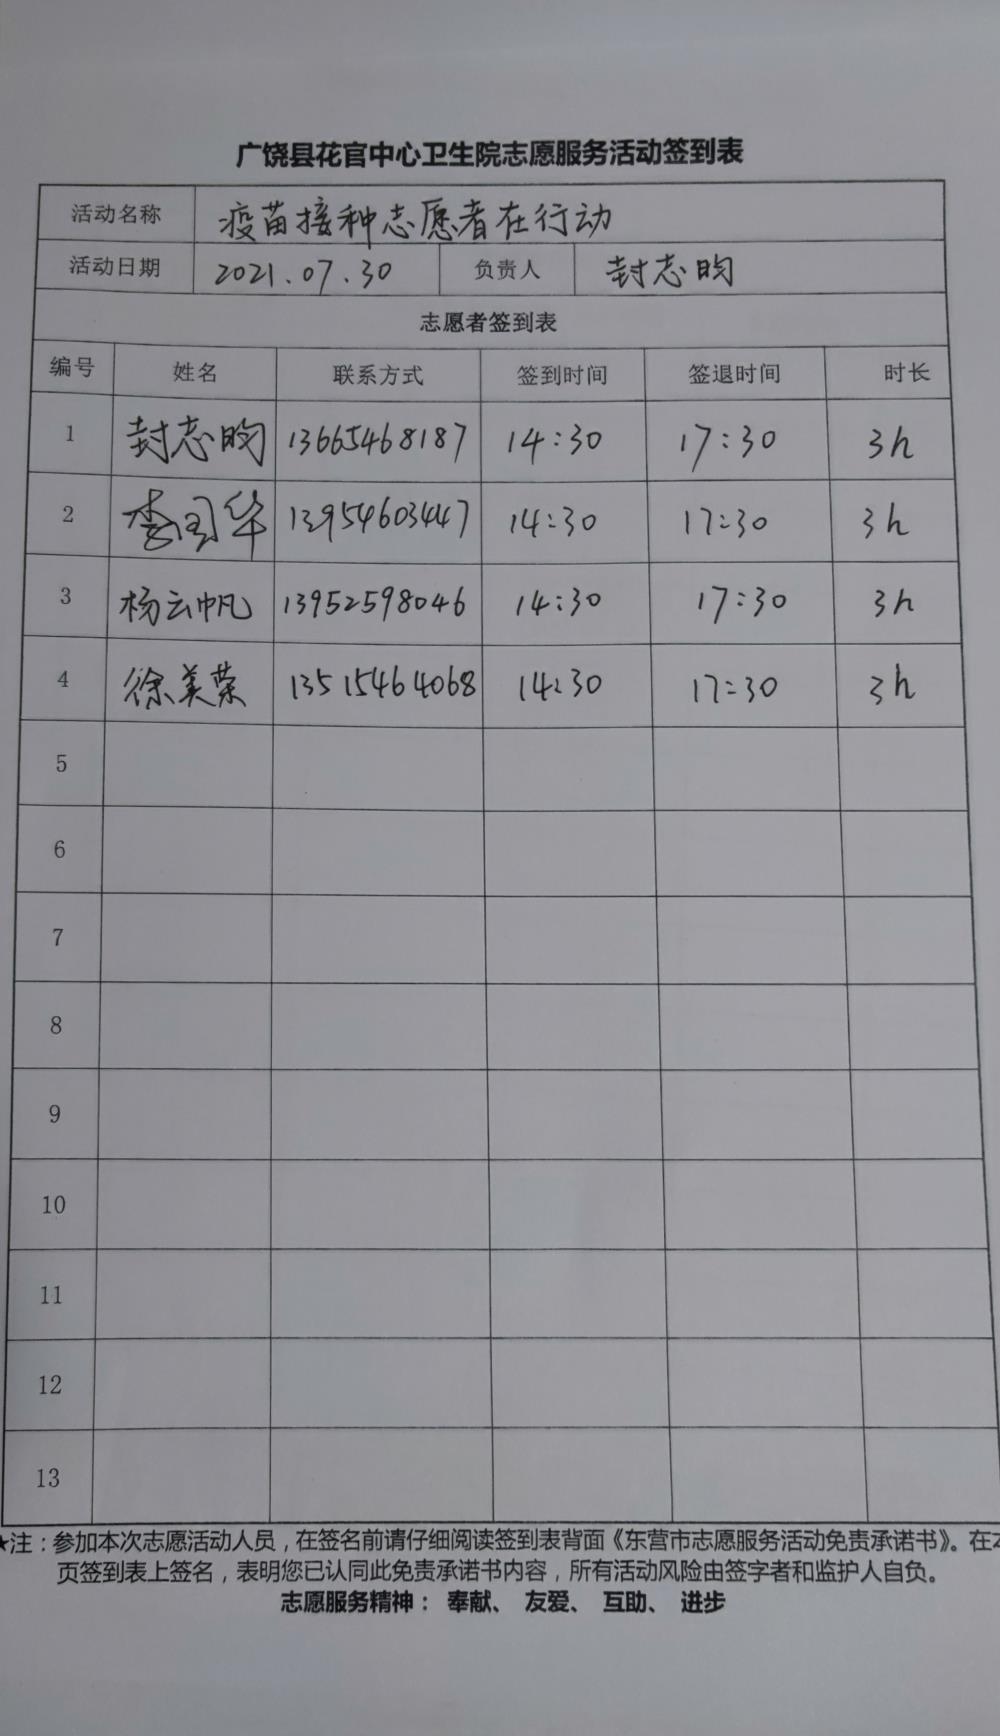 广饶县花官中心卫生院志愿服务活动签到表
活动名称 疫苗接种志愿者在行动
活动日期 2021.07.30 负责人 封志昀
志愿者签到表
编号 姓名 联系方式 签到时间 签退时间 时长
1 封志昀 13665468187 14:30 17:30 3h
2 李国华 13954603447 14:30 17:30 3h
3 杨云帆 13952598046 14:30 17:30 3h
4 徐美荣 13515464068 14:30 17:30 3h
5
6
7
8
9
10
11
12
13
★注：参加本次志愿活动人员，在签名前请仔细阅读签到表背面《东营市志愿服务活动免责承诺书》。在本
页签到表上签名，表明您已认同此免责承诺书内容，所有活动风险由签字者和监护人自负。
志愿服务精神： 奉献、 友爱、 互助、 进步